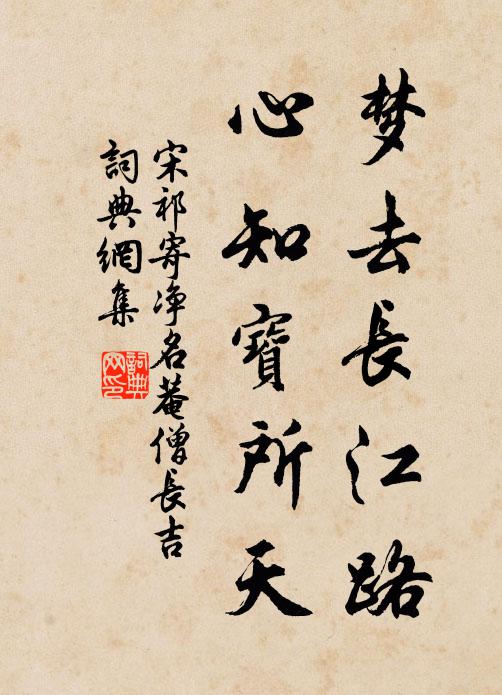 梦去長江路
心知寶所天
宋祁寄净名菴僧長吉
詞典網集
詞典网印